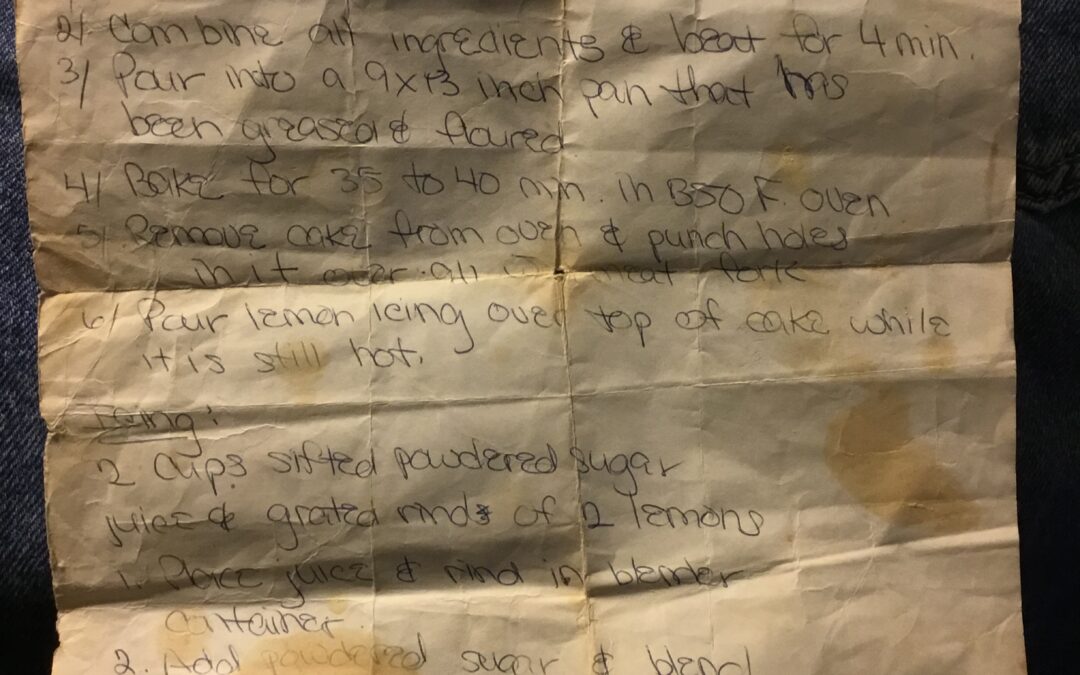 2/ Combine all ingredients & beat for 4 min.
3/ Pour into a 9x13 inch pan that has
been greased & floured
4/ Bake for 35 to 40 min. in 350 F. oven
5/ Remove cake from oven & punch holes
in it over all meat fork
6/ Pour lemon icing over top of cake while
it is still hot.
Icing:
2 Cups sifted powdered sugar
juice & grated rinds of 2 lemons
1. Place juice & rind in blender
container.
2. Add powdered sugar & blend